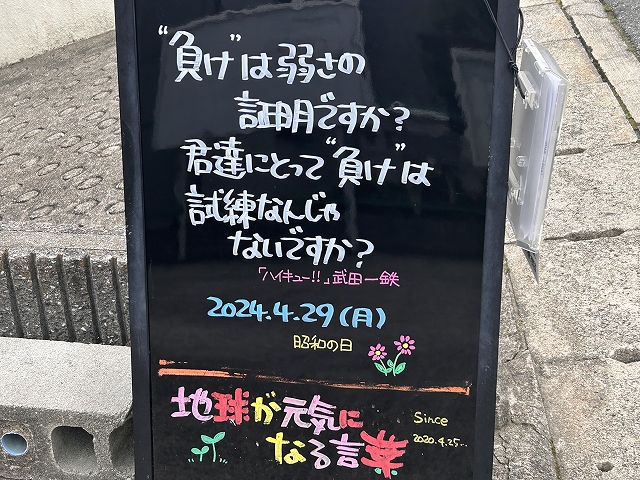 “負け”は弱さの
証明ですか?
君達にとって“負け”は
試練なんじゃ
ないですか?
「ハイキュー!!」武田一鉄
2024.4.29(月)
昭和の日
地球が元気に
なる言葉
Since
2020.4.25...